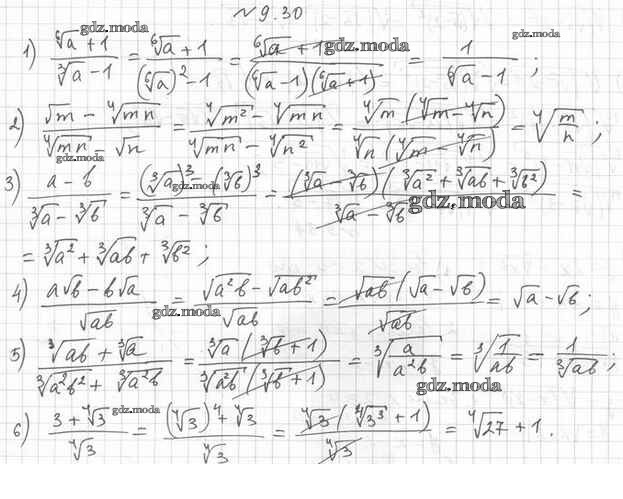 № 9.30
gdz.moda gdz.moda gdz.moda
1) (⁶√a + 1)/(³√a − 1) = (⁶√a + 1)/((⁶√a)² − 1) = (⁶√a + 1)/((⁶√a − 1)(⁶√a + 1)) = 1/(⁶√a − 1) ;
2) (√m − ⁴√mn)/(⁴√mn − √n) = (⁴√m² − ⁴√mn)/(⁴√mn − ⁴√n²) = (⁴√m (⁴√m − ⁴√n))/(⁴√n (⁴√m − ⁴√n)) = ⁴√(m/n) ;
gdz.moda
3) (a − b)/(³√a − ³√b) = ((³√a)³ − (³√b)³)/(³√a − ³√b) = ((³√a − ³√b)(³√a² + ³√ab + ³√b²))/(³√a − ³√b) =
gdz.moda gdz.moda
= ³√a² + ³√ab + ³√b² ;
4) (a√b − b√a)/√ab = (√a²b − √ab²)/√ab = (√ab (√a − √b))/√ab = √a − √b ;
gdz.moda
5) (³√ab + ³√a)/(³√a²b² + ³√a²b) = (³√a (³√b + 1))/(³√a²b (³√b + 1)) = ³√(a/a²b) = ³√(1/ab) = 1/³√ab ;
gdz.moda
6) (3 + ⁴√3)/⁴√3 = ((⁴√3)⁴ + ⁴√3)/⁴√3 = (⁴√3 (⁴√3³ + 1))/⁴√3 = ⁴√27 + 1 .
gdz.moda